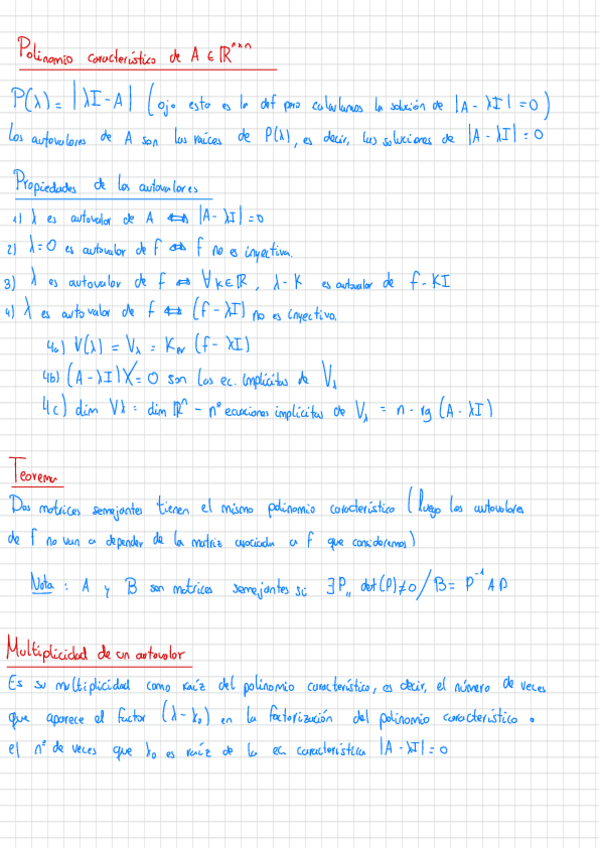 Polinomio característico de A ∈ ℝⁿˣⁿ
P(λ) = |λI - A| (ojo esto es la def pero calculamos la solución de |A - λI| = 0)
Los autovalores de A son las raíces de P(λ), es decir, las soluciones de |A - λI| = 0
Propiedades de los autovalores
1) λ es autovalor de A ⇔ |A - λI| = 0
2) λ = 0 es autovalor de f ⇔ f no es inyectiva.
3) λ es autovalor de f ⇔ ∀ k ∈ ℝ, λ - K es autovalor de f - KI
4) λ es autovalor de f ⇔ (f - λI) no es inyectiva.
4a) V(λ) = Vλ = Ker (f - λI)
4b) (A - λI)X = 0 son las ec. implícitas de Vλ
4c) dim Vλ = dim ℝⁿ - nº ecuaciones implícitas de Vλ = n - rg (A - λI)
Teorema
Dos matrices semejantes tienen el mismo polinomio característico (luego los autovalores
de f no van a depender de la matriz asociada a f que consideremos)
Nota: A y B son matrices semejantes si ∃P, det(P) ≠ 0 / B = P⁻¹ A P
Multiplicidad de un autovalor
Es su multiplicidad como raíz del polinomio característico, es decir, el número de veces
que aparece el factor (λ - λ₀) en la factorización del polinomio característico o
el nº de veces que λ₀ es raíz de la ec. característica |A - λI| = 0